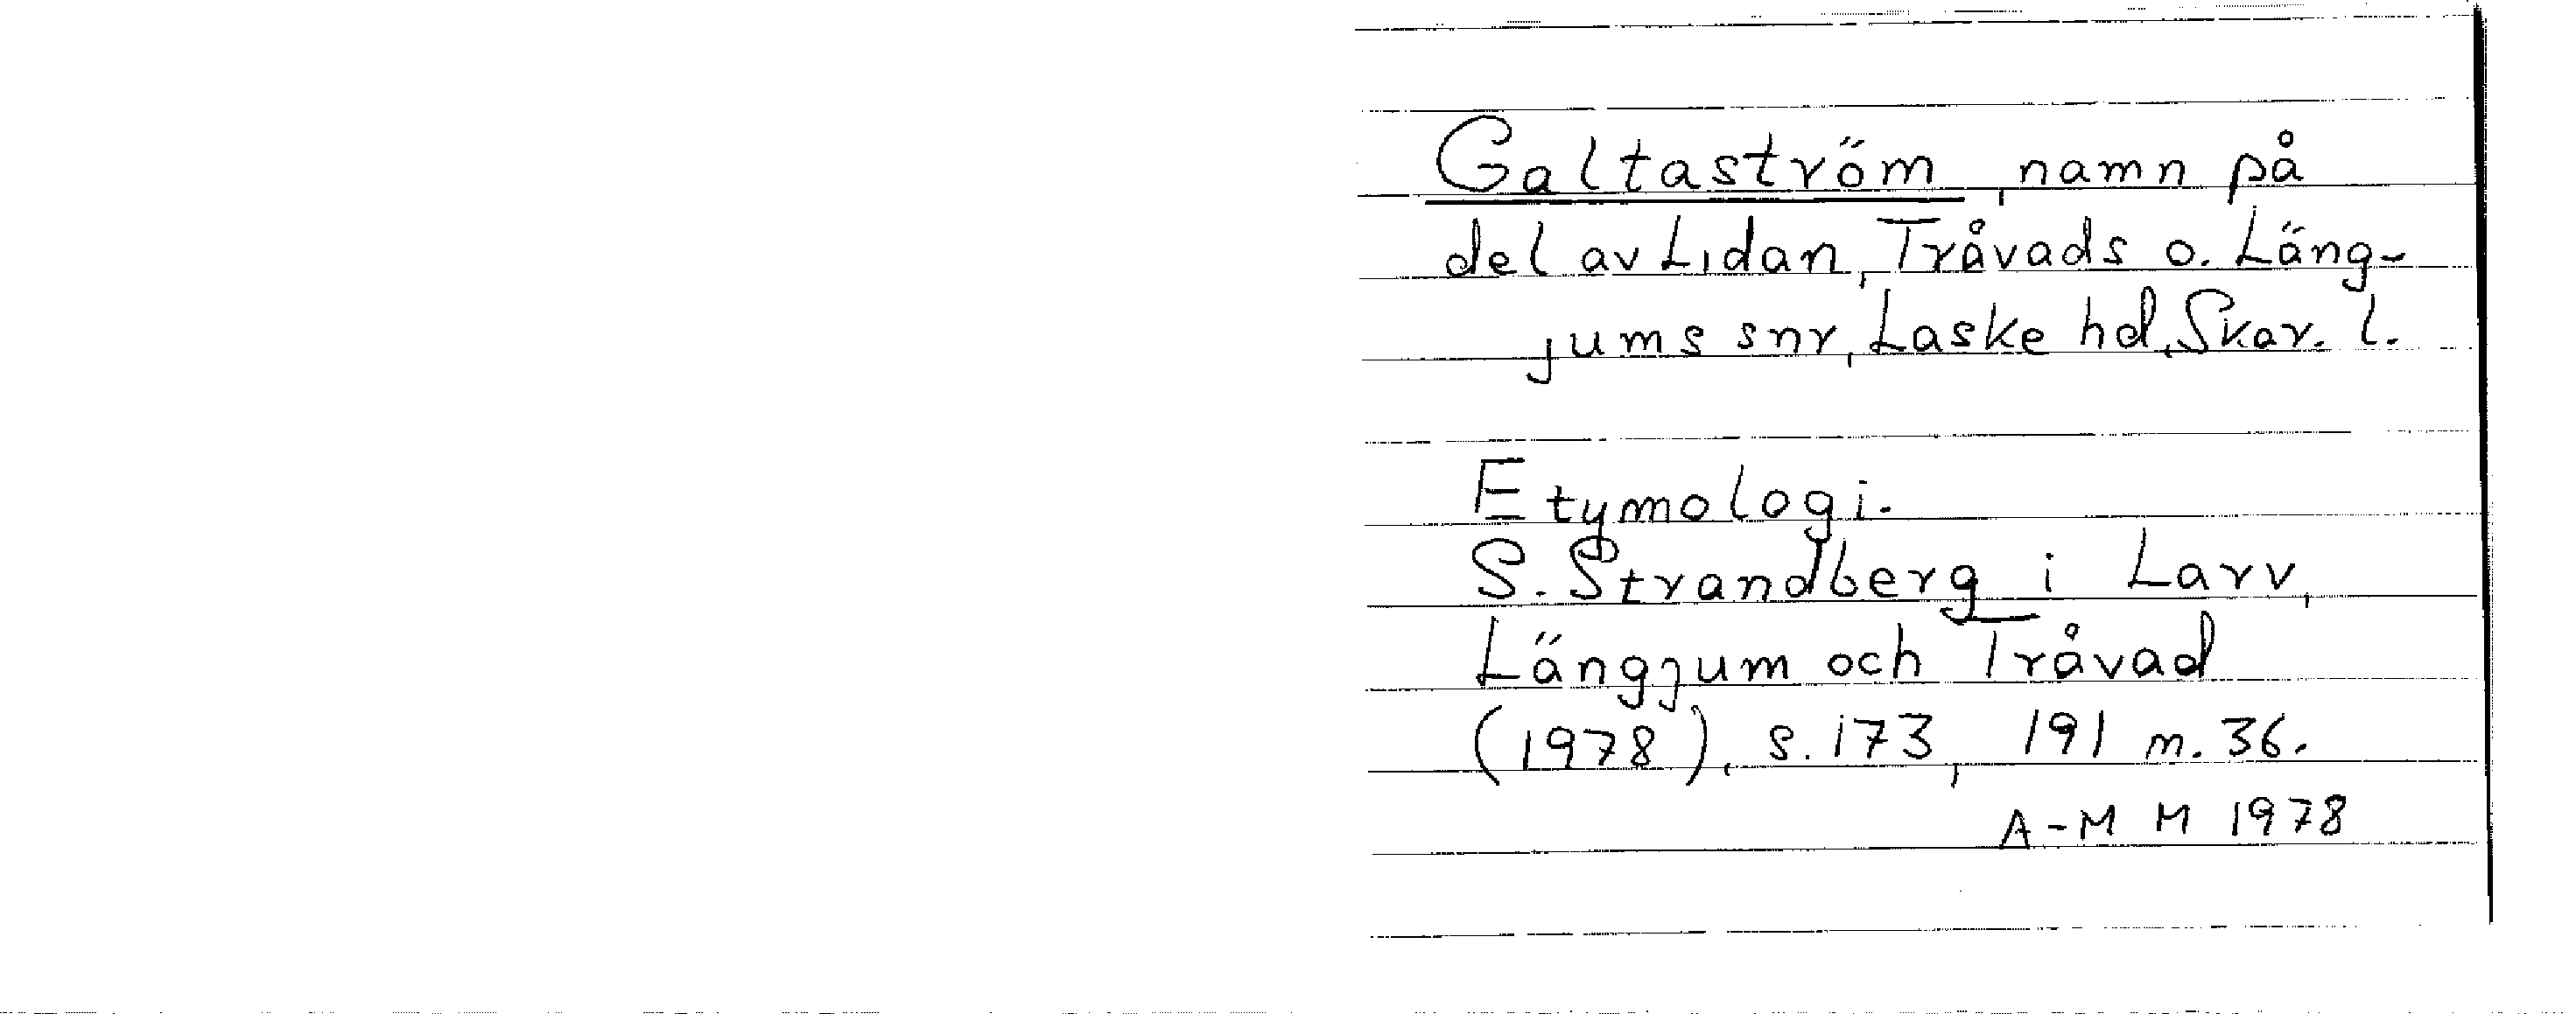 Galtaström, namn på
del av Lidan, Tråvads o. Läng-
jums snr, Laske hd, Skar. l.
Etymologi.
S. Strandberg i Larv,
Längjum och Tråvad
(1978), s. 173, 191 m. 36.
A-M M 1978